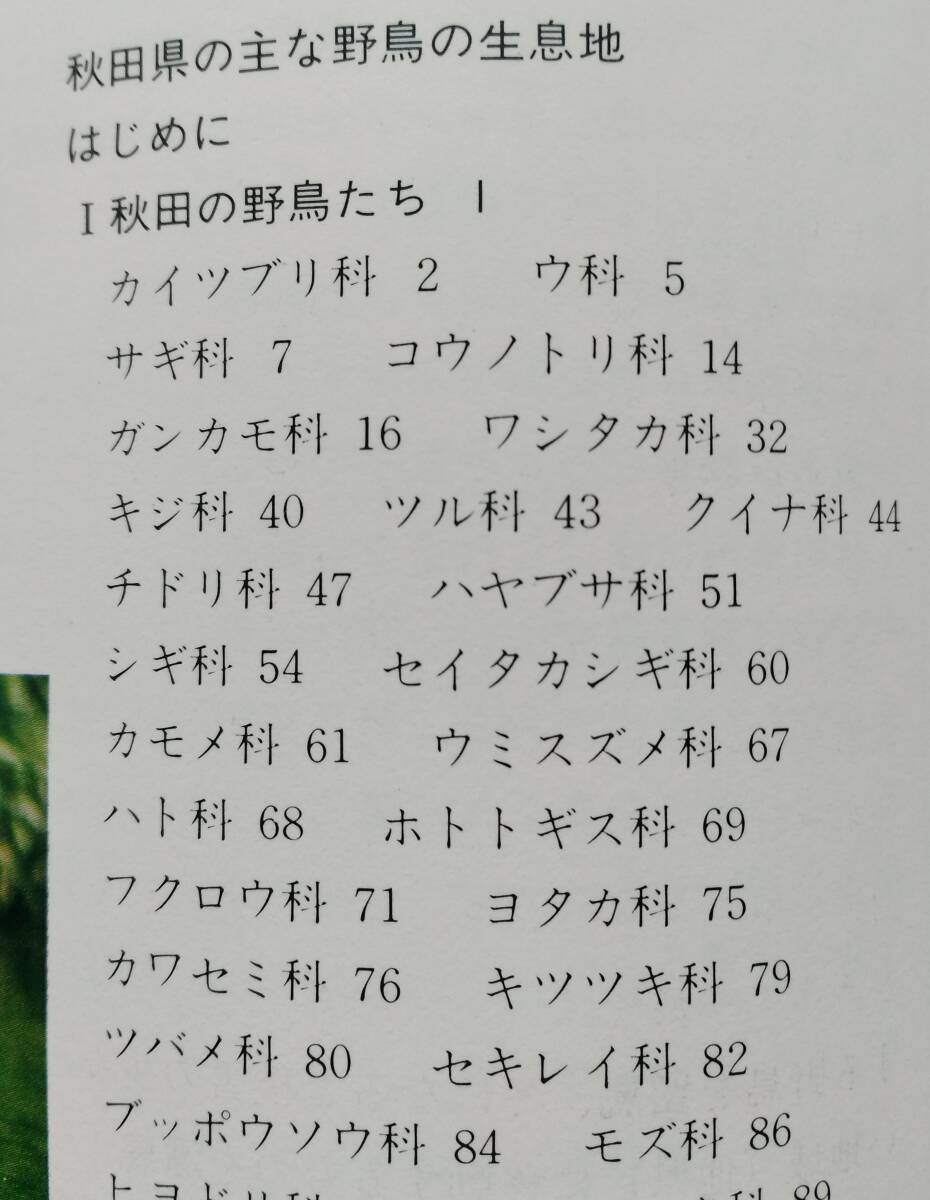 秋田県の主な野鳥の生息地
はじめに
I 秋田の野鳥たち 1
カイツブリ科 2 ウ科 5
サギ科 7 コウノトリ科 14
ガンカモ科 16 ワシタカ科 32
キジ科 40 ツル科 43 クイナ科 44
チドリ科 47 ハヤブサ科 51
シギ科 54 セイタカシギ科 60
カモメ科 61 ウミスズメ科 67
ハト科 68 ホトトギス科 69
フクロウ科 71 ヨタカ科 75
カワセミ科 76 キツツキ科 79
ツバメ科 80 セキレイ科 82
ブッポウソウ科 84 モズ科 86
ヒヨドリ科 89